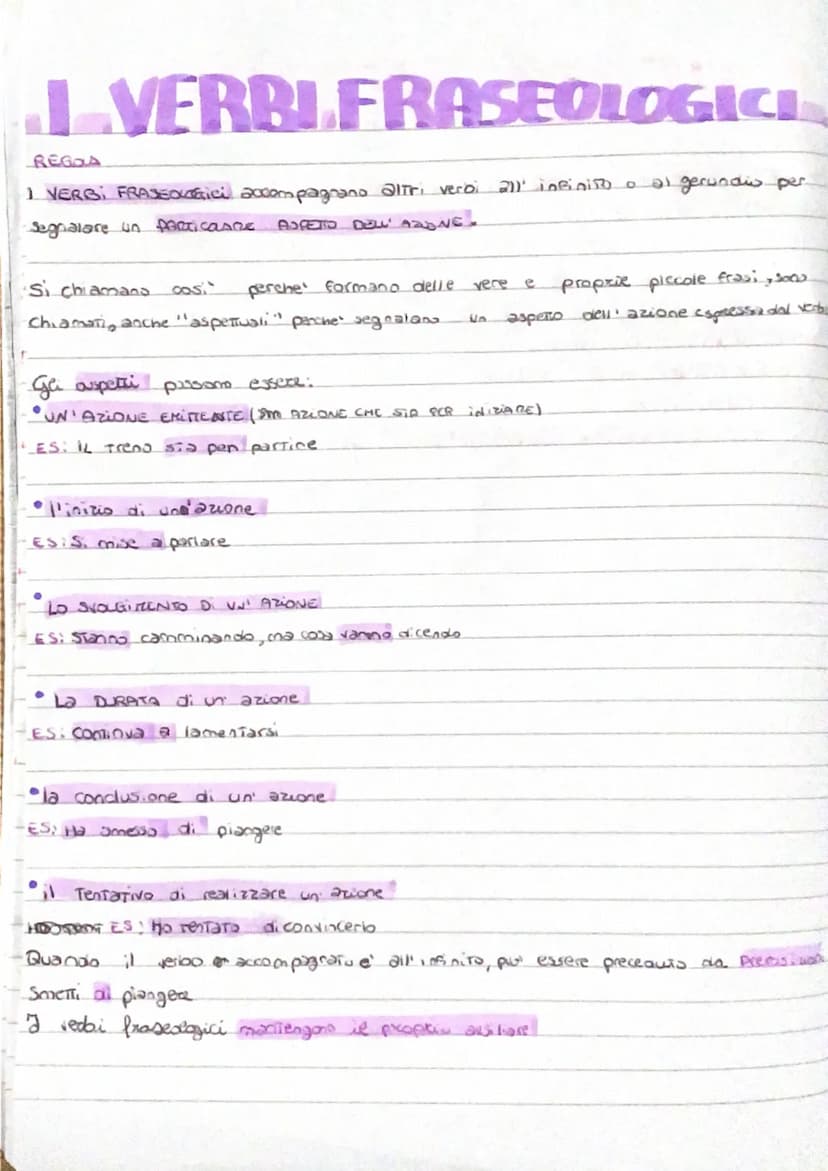 I VERBI FRASEOLOGICI
REGOLA
I VERBI FRASEOLOGICI accompagnano altri verbi all'infinito o al gerundio per
segnalare un PARTICOLARE ASPETTO DELL'AZIONE.
Si chiamano così perché formano delle vere e proprie piccole frasi, sono
chiamati, anche "aspettuali" perché segnalano un aspetto dell'azione espressa dal verbo
Gli aspetti possono essere:
• UN'AZIONE EMITTENTE ( AZIONE CHE STA PER INIZIARE)
ES: IL Treno sta per partire
• l'inizio di una azione
ES: Si mise a parlare
• LO SVOLGIMENTO DI UN'AZIONE
ES: STANNO camminando, ma cosa vanno dicendo
• La DURATA di un azione
ES: Continua a lamentarsi
• la conclusione di un' azione
ES: Ha smesso di piangere
• il Tentativo di realizzare un' azione
ES: Ho tentato di convincerlo
Quando il verbo accompagnato è all'infinito, può essere preceduto da
Smetti di piangere
I verbi fraseologici mantengono il proprio ausiliare